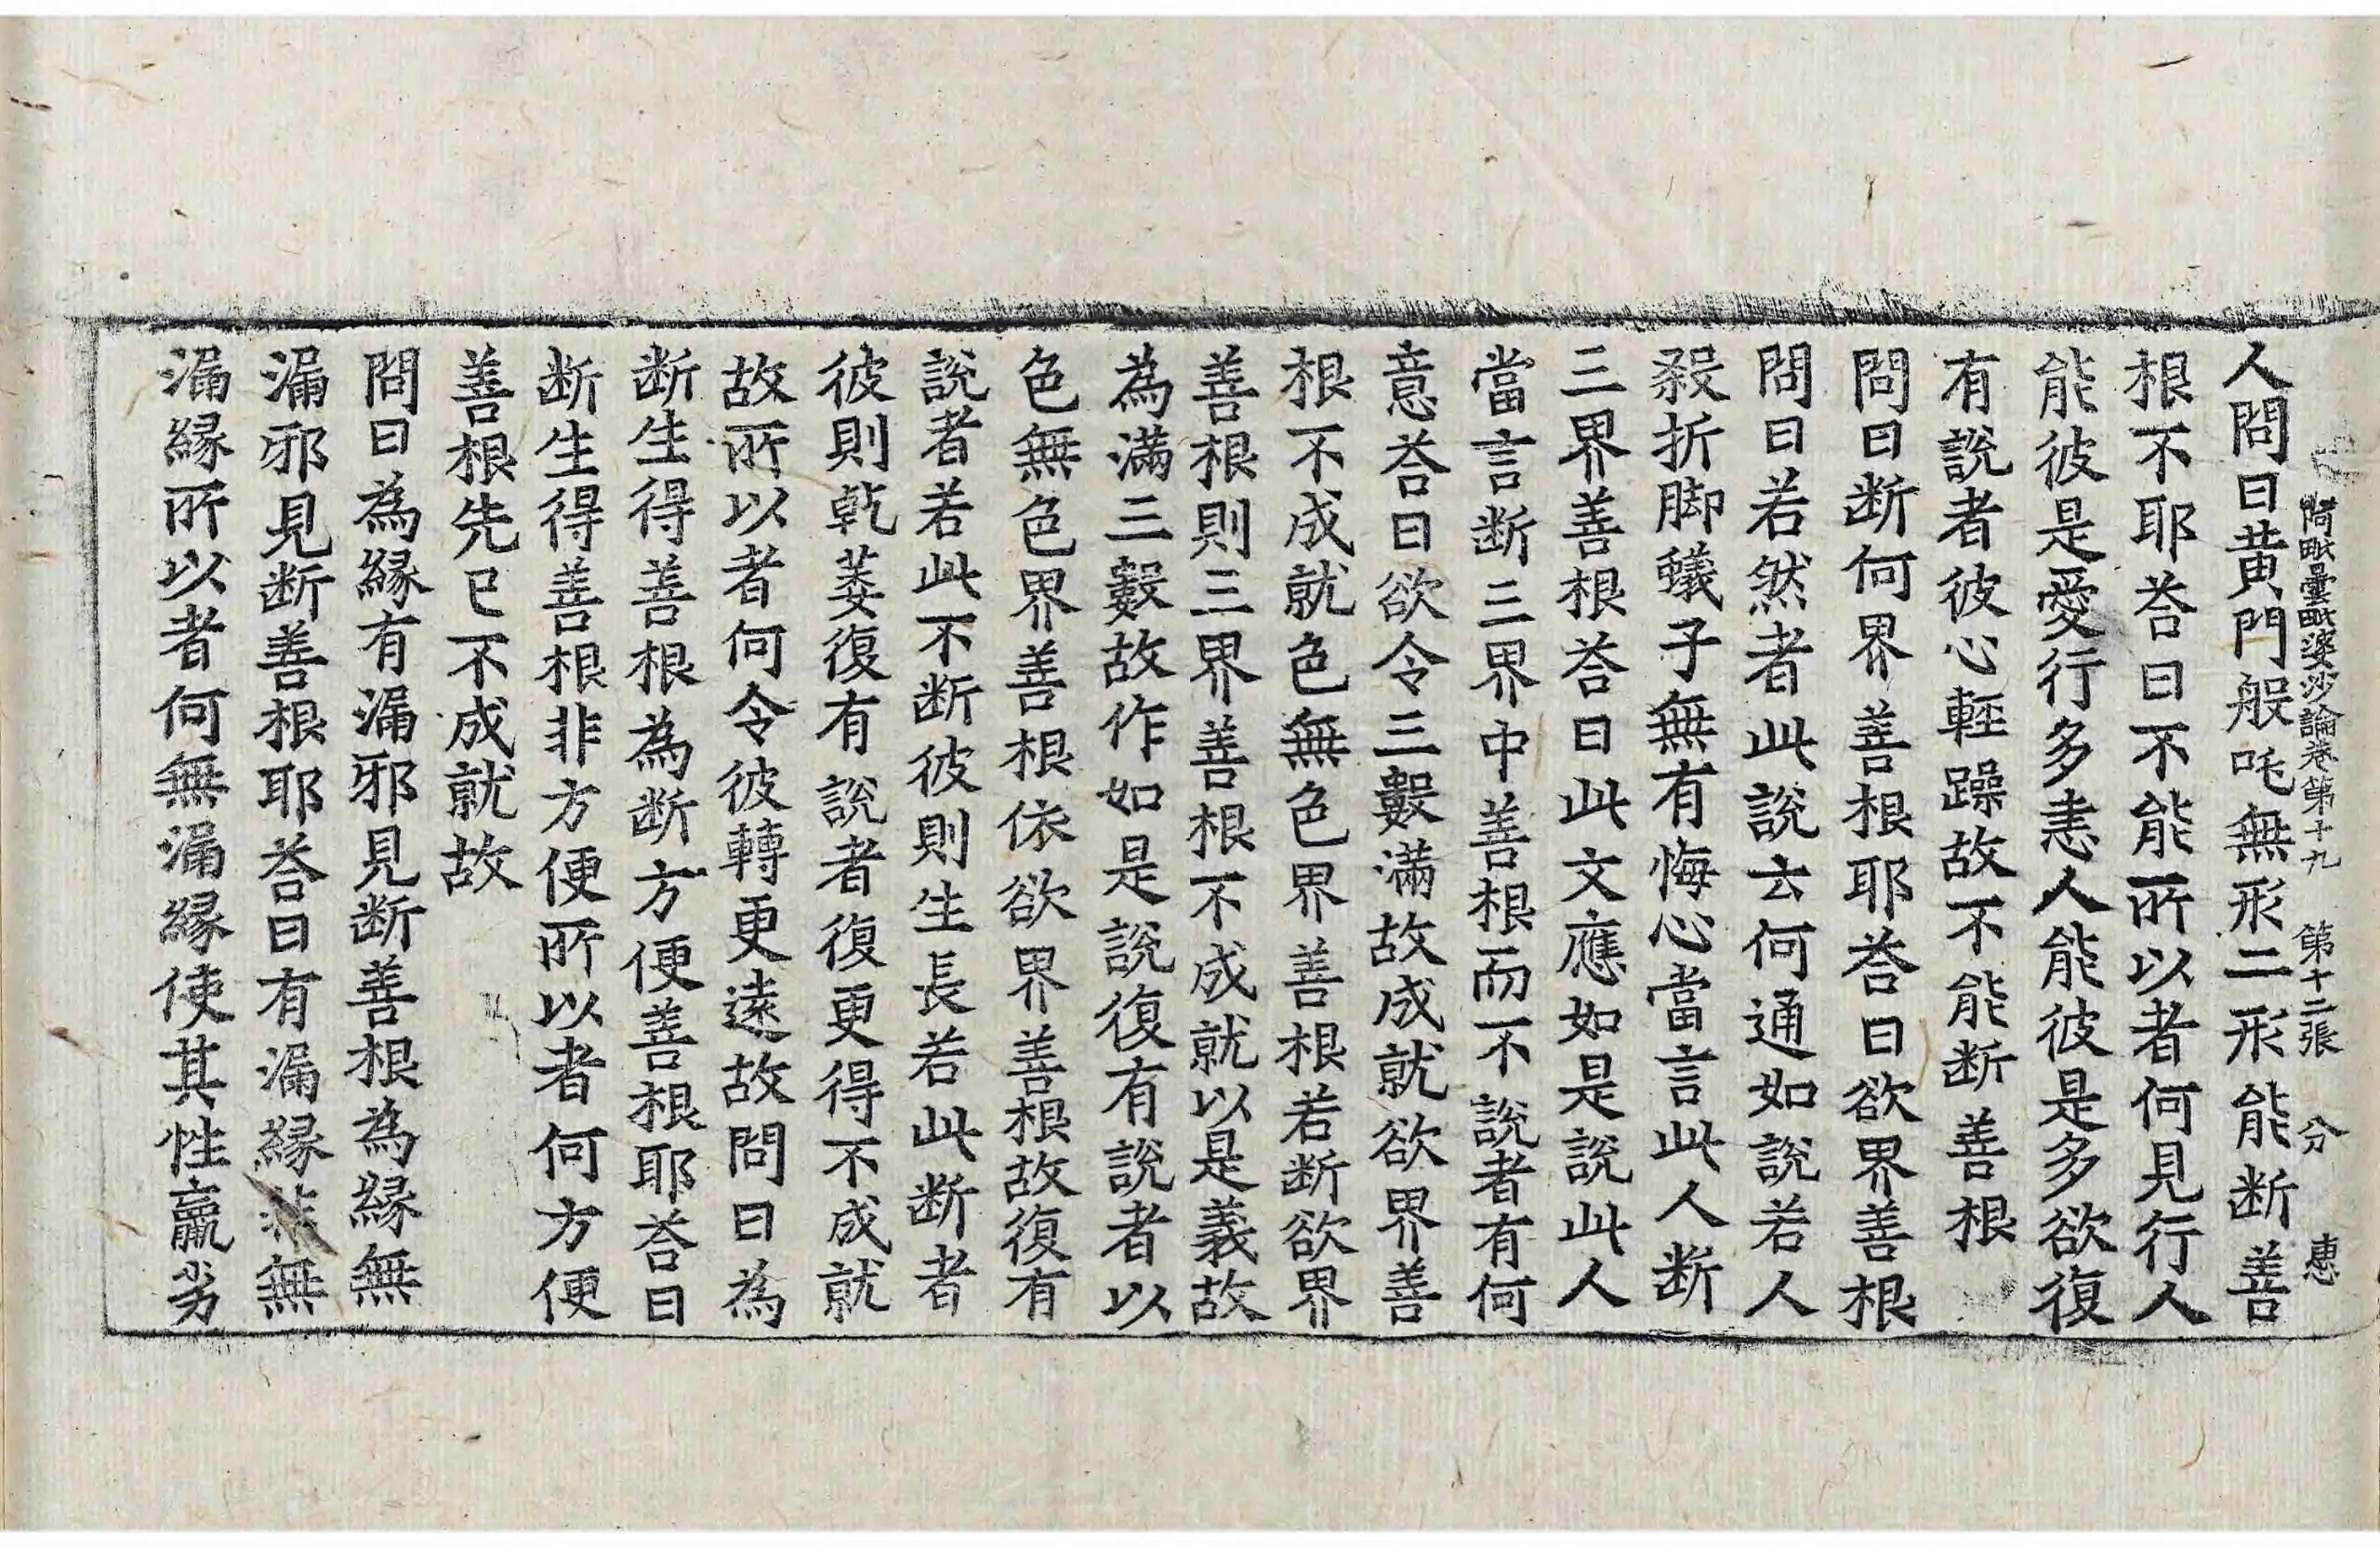 阿毗曇毗婆沙論卷第十九 第十二張 分 惠
人問曰黃門般吒無形二形能断善
根不耶荅曰不能所以者何見行人
能彼是愛行多恚人能彼是多欲復
有說者彼心輕躁故不能断善根
問曰断何界善根耶荅曰欲界善根
問曰若然者此說云何通如說若人
殺折脚蟻子無有悔心當言此人断
三界善根荅曰此文應如是說此人
當言断三界中善根而不說者有何
意荅曰欲令三數滿故成就欲界善
根不成就色無色界善根若断欲界
善根則三界善根不成就以是義故
為滿三數故作如是說復有說者以
色無色界善根依欲界善根故復有
說者若此不断彼則生長若此断者
彼則乾萎復有說者復更得不成就
故所以者何令彼轉更遠故問曰為
断生得善根為断方便善根耶荅曰
断生得善根非方便所以者何方便
善根先已不成就故
問曰為緣有漏邪見断善根為緣無
漏邪見断善根耶荅曰有漏緣非無
漏緣所以者何無漏緣使其性羸劣